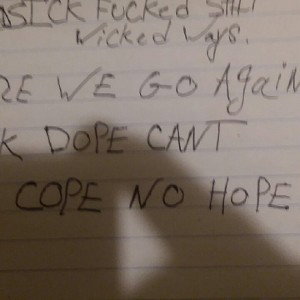 SICK FUCKED SHIT
Wicked Ways.
RE WE GO AgaiN
K DOPE CANT
COPE NO HOPE